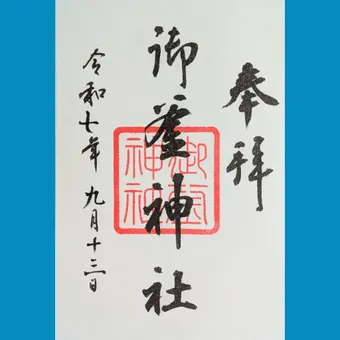 奉拝
御釜神社
御釜神社
令和七年九月十三日